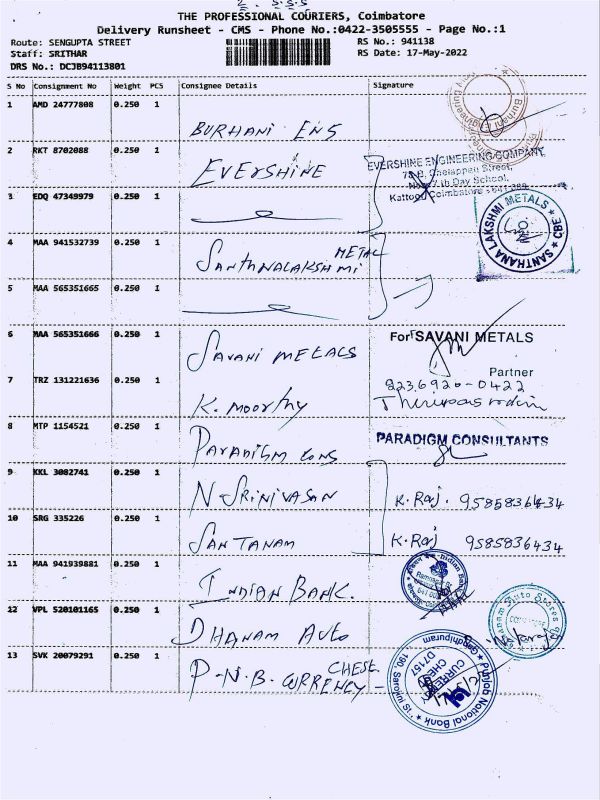 THE PROFESSIONAL COURIERS, Coimbatore
Delivery Runsheet - CMS - Phone No.:0422-3505555 - Page No.:1
Route: SENGUPTA STREET
Staff: SRITHAR
DRS No.: DCJB94113801
RS No.: 941138
RS Date: 17-May-2022
S No Consignment No Weight PCS Consignee Details Signature
1 AMD 24777808 0.250 1 BURHANI ENS
2 RKT 8702088 0.250 1 EVERSHINE
EVERSHINE ENGINEERING COMPANY
Street,
Day School,
Kattoor Coimbatore
3 EDQ 47349979 0.250 1
4 MAA 941532739 0.250 1 SANTHNALAKSHMI METAL
SANTHANA LAKSHMI METALS ★ CBE ★
5 MAA 565351665 0.250 1
6 MAA 565351666 0.250 1 SAVANI METALS
For SAVANI METALS
Partner
7 TRZ 131221636 0.250 1 K. Moorthy
8236920-0422
8 MTP 1154521 0.250 1 PARADIGM CONS
PARADIGM CONSULTANTS
9 KKL 3082741 0.250 1 N SRINIVASAN K. Raj. 9585836434
10 SRG 335226 0.250 1 SANTANAM K. Raj 9585836434
11 MAA 941939881 0.250 1 INDIAN BANK.
Indian Bank
12 VPL 520101165 0.250 1 DHANAM AUTO
13 SVK 20079291 0.250 1 P.N.B. CURRENCY CHEST
Punjab National Bank ★ 190, Sarojini St., Gandhipuram
CURRENCY CHEST
D7157